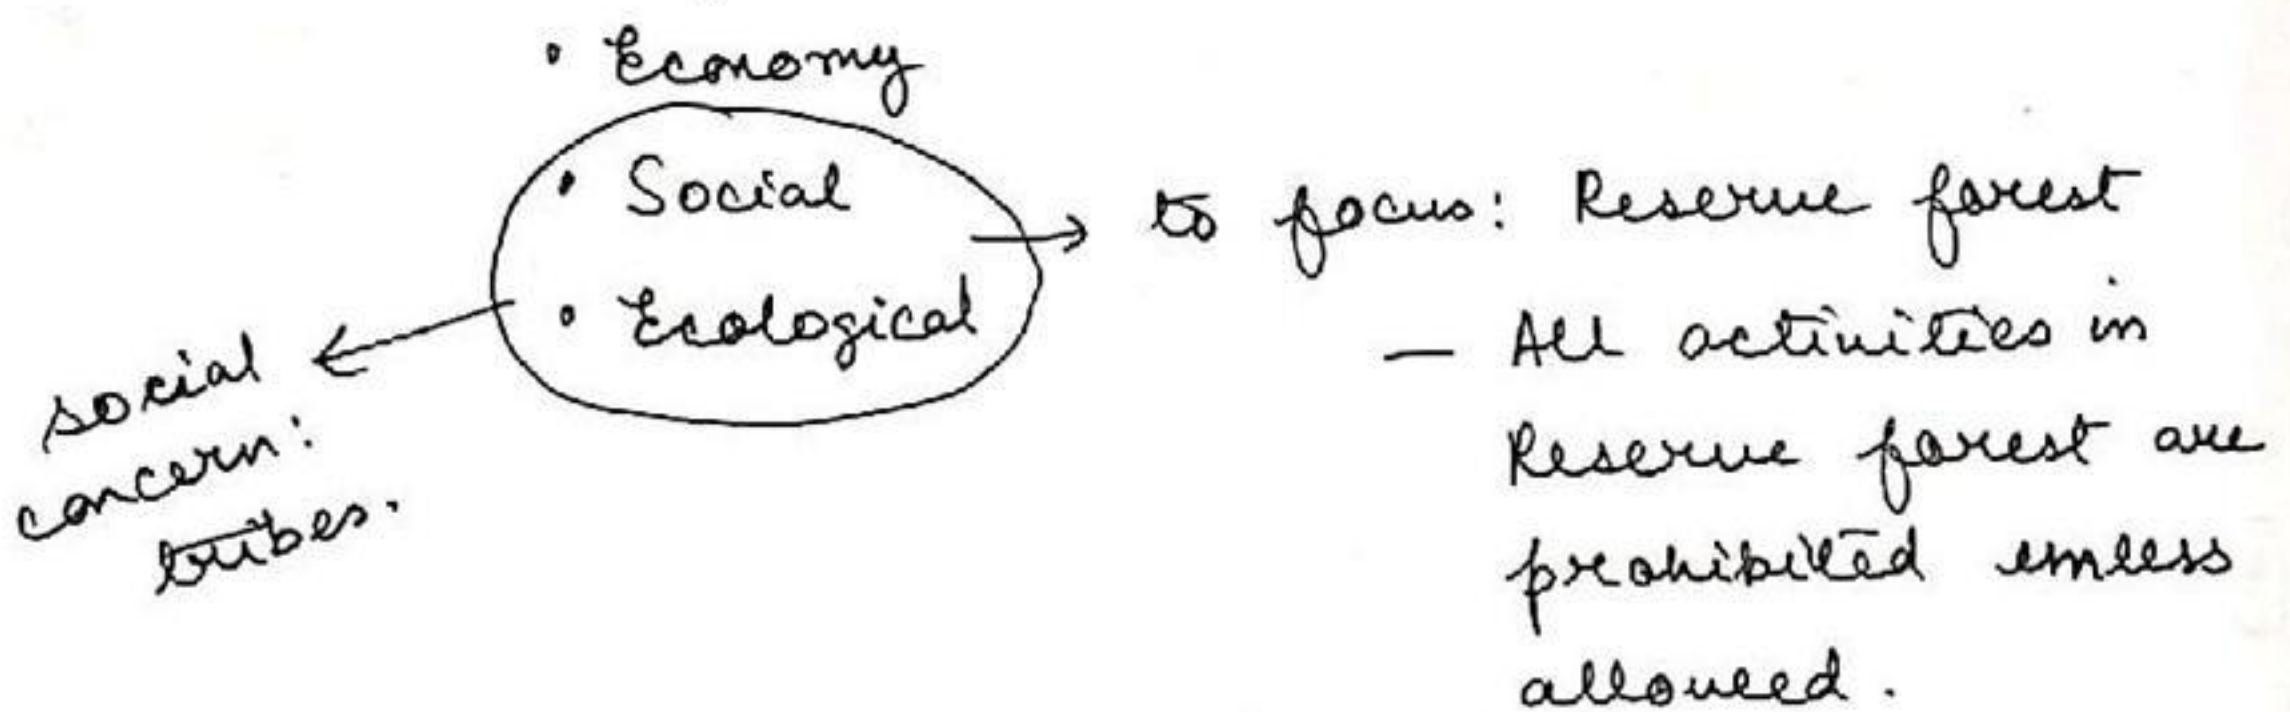 • Economy
• Social
• Ecological
→ to focus: Reserve forest
— All activities in
Reserve forest are
prohibited unless
allowed.
social
concern:
tribes.